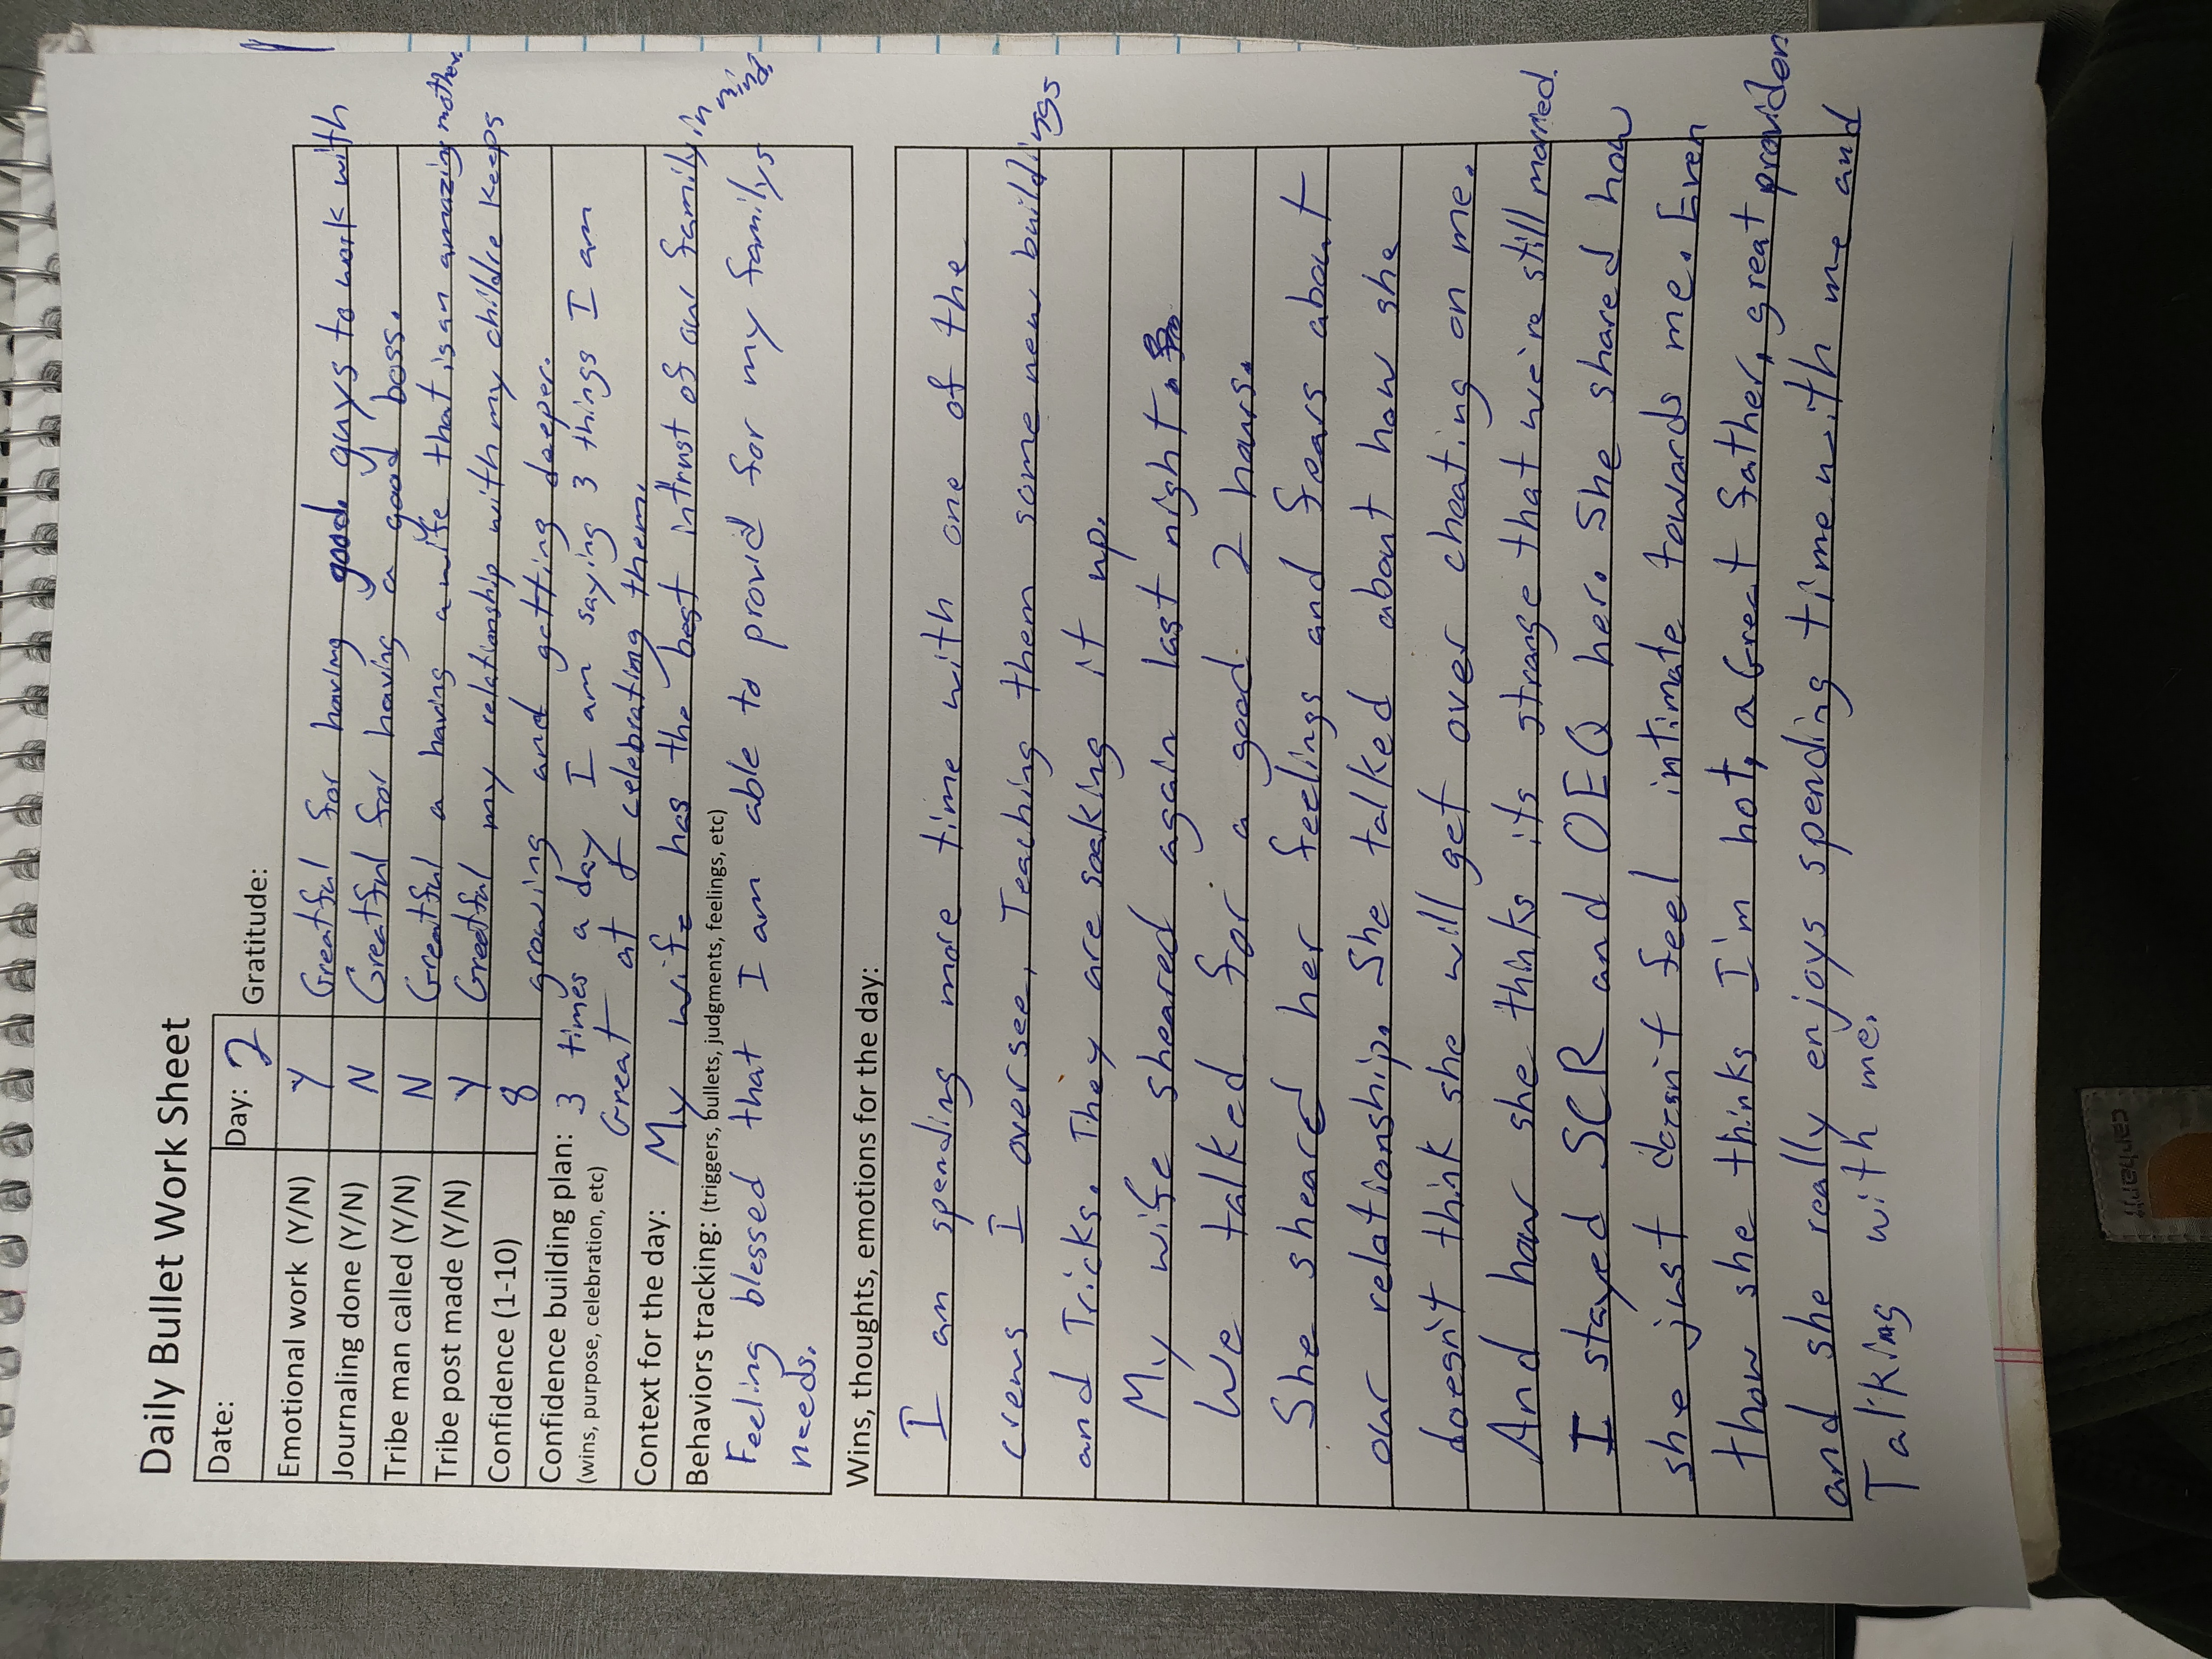 Daily Bullet Work Sheet
Date: Day: 2 Gratitude:
Emotional work (Y/N) Y Greatful for having good guys to work with
Journaling done (Y/N) N Greatful for having a good boss.
Tribe man called (Y/N) N Greatful a having a wife that is an amazing mother.
Tribe post made (Y/N) Y Greatful my relationship with my childre keeps
Confidence (1-10) 8 growing and getting deeper.
Confidence building plan: 3 times a day I am saying 3 things I am
(wins, purpose, celebration, etc) Great at & celebrating them.
Context for the day: My wife has the best intrust of our family in mind.
Behaviors tracking: (triggers, bullets, judgments, feelings, etc)
Feeling blessed that I am able to provid for my familys
needs.
Wins, thoughts, emotions for the day:
I am spending more time with one of the
crews I oversee. Teaching them some new buildings
and Tricks. They are soaking it up.
My wife sheared again last night.
We talked for a good 2 hours.
She sheared her feelings and fears about
our relationship. She talked about how she
doesn't think she will get over cheating on me.
And how she thinks its strange that we're still married.
I stayed SCR and OEQ her. She shared how
she just doesn't feel intimate towards me. Even
thow she thinks I'm hot, a Great father, great provider
and she really enjoys spending time with me and
Talking with me.
carhartt